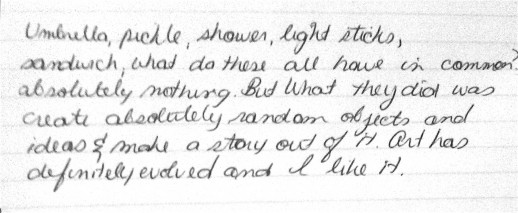 Umbrella, pickle, shower, light sticks,
sandwich, what do these all have in common?
absolutely nothing. But what they did was
create absolutely random objects and
ideas & make a story out of it. Art has
definitely evolved and I like it.